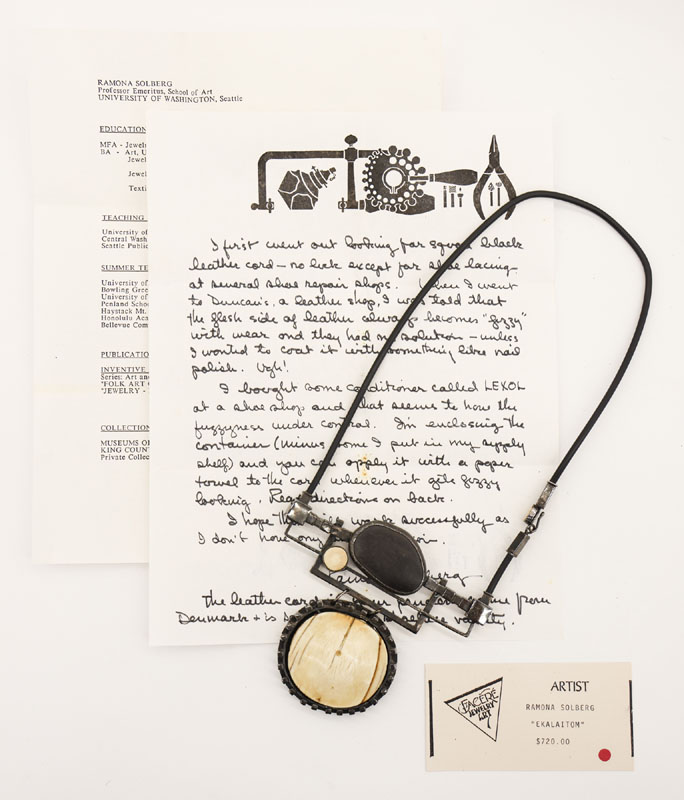 RAMONA SOLBERG
Professor Emeritus, School of Art
UNIVERSITY OF WASHINGTON, Seattle
EDUCATION
MFA - Jewel
BA - Art, U
Jewel
Jewel
Texti
TEACHING
University of
Central Wash
Seattle Public
SUMMER TE
University of
Bowling Gree
University of
Penland Schoo
Haystack Mt.
Honolulu Aca
Bellevue Com
PUBLICATIO
INVENTIVE
Series: Art an
"FOLK ART
"JEWELRY -
COLLECTION
MUSEUMS OF
KING COUNT
Private Collec
I first went out looking for square black
leather cord - no luck except for shoe lacing
at several shoe repair shops. When I went
to Duncan's, a leather shop, I was told that
the flesh side of leather always becomes "fuzzy"
with wear and they had no solution - unless
I wanted to coat it with something like nail
polish. Ugh!
I bought some conditioner called LEXOL
at a shoe shop and that seems to have the
fuzzyness under control. I'm enclosing the
container (minus some I put in my supply
shelf) and you can apply it with a paper
towel to the cord whenever it gets fuzzy
looking. Read directions on back.
I hope this works successfully as
I don't have any
berg
The leather cord is from
Denmark + is
FACERÉ
JEWELRY
ART
ARTIST
RAMONA SOLBERG
"EKALAITOM"
$720.00